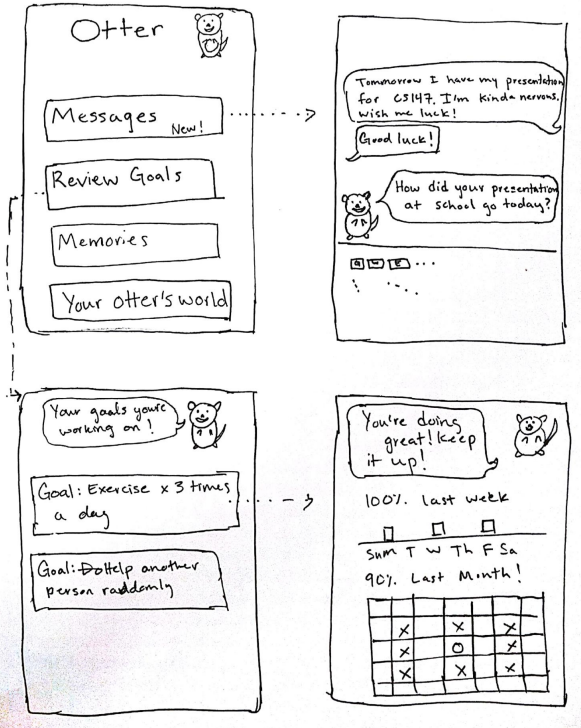 Otter
Messages
New!
Review Goals
Memories
Your otter's world
Tommorrow I have my presentation
for CS147. I'm kinda nervous.
Wish me luck!
Good luck!
How did your presentation
at school go today?
Q W E ...
Your goals you're
working on!
Goal: Exercise x 3 times
a day
Goal: Do Help another
person raddomly
You're doing
great! Keep
it up!
100% last week
Sum T W Th F Sa
90% Last Month!
X X X
X O X
X X X